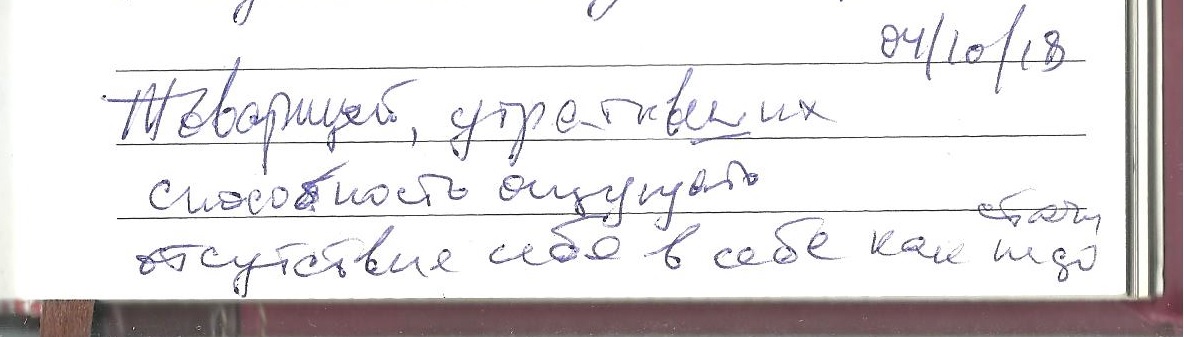 04/10/18
Товарищей, утративших
способность ощущать
отсутствие себя в себе как